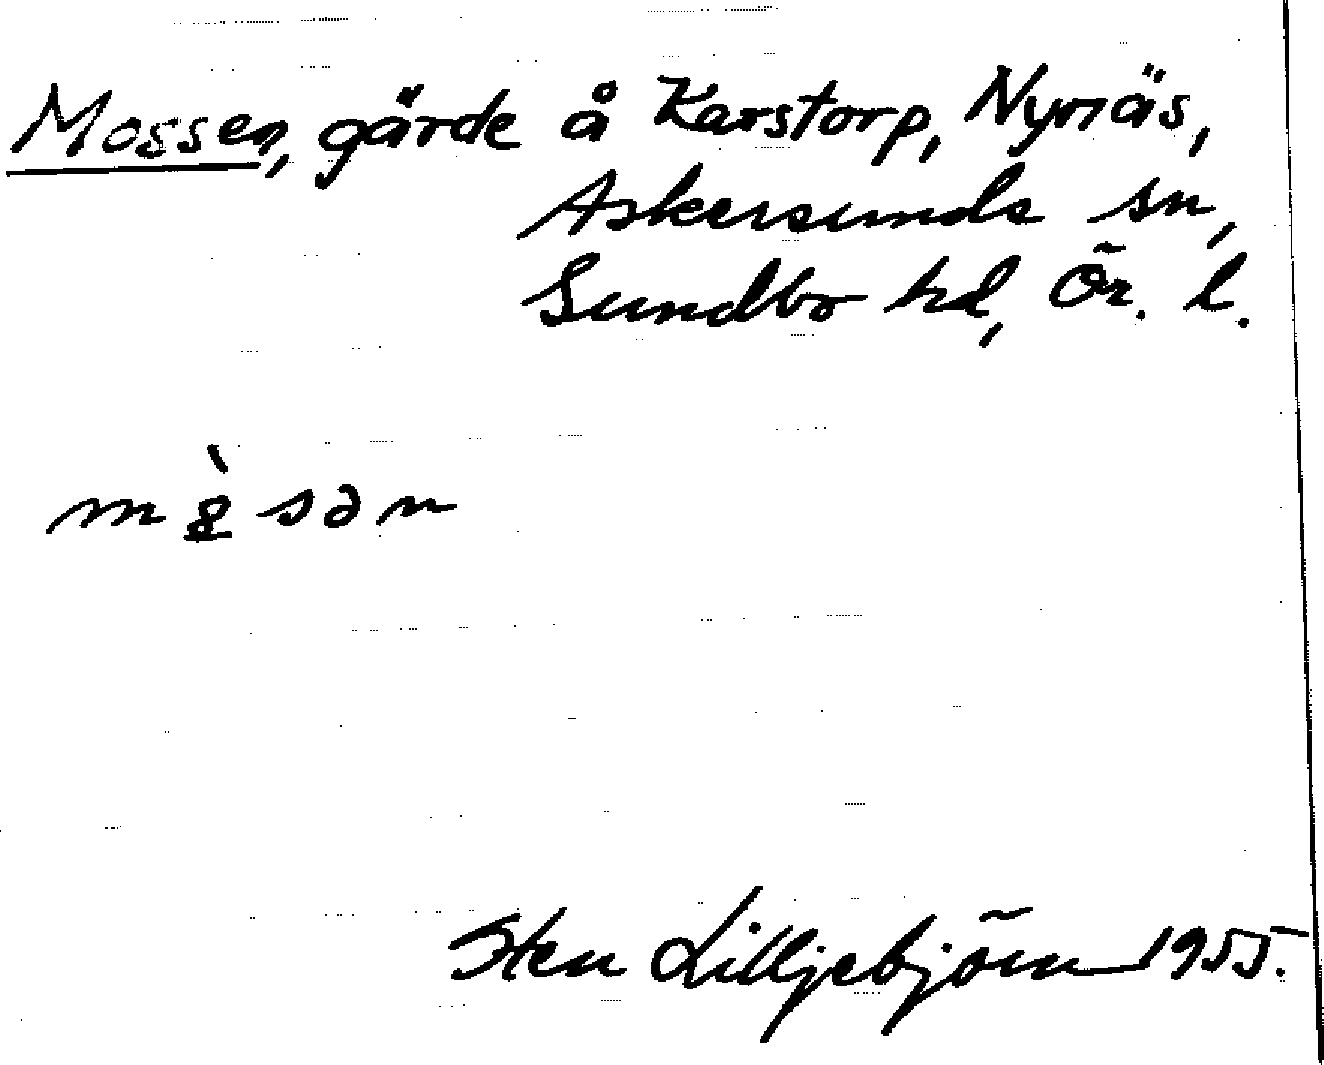 Mossen, gärde å Karstorp, Nynäs,
Askersunds sn,
Sundbo hd, Ör. l.
Sten Lilljebjörn 1955.